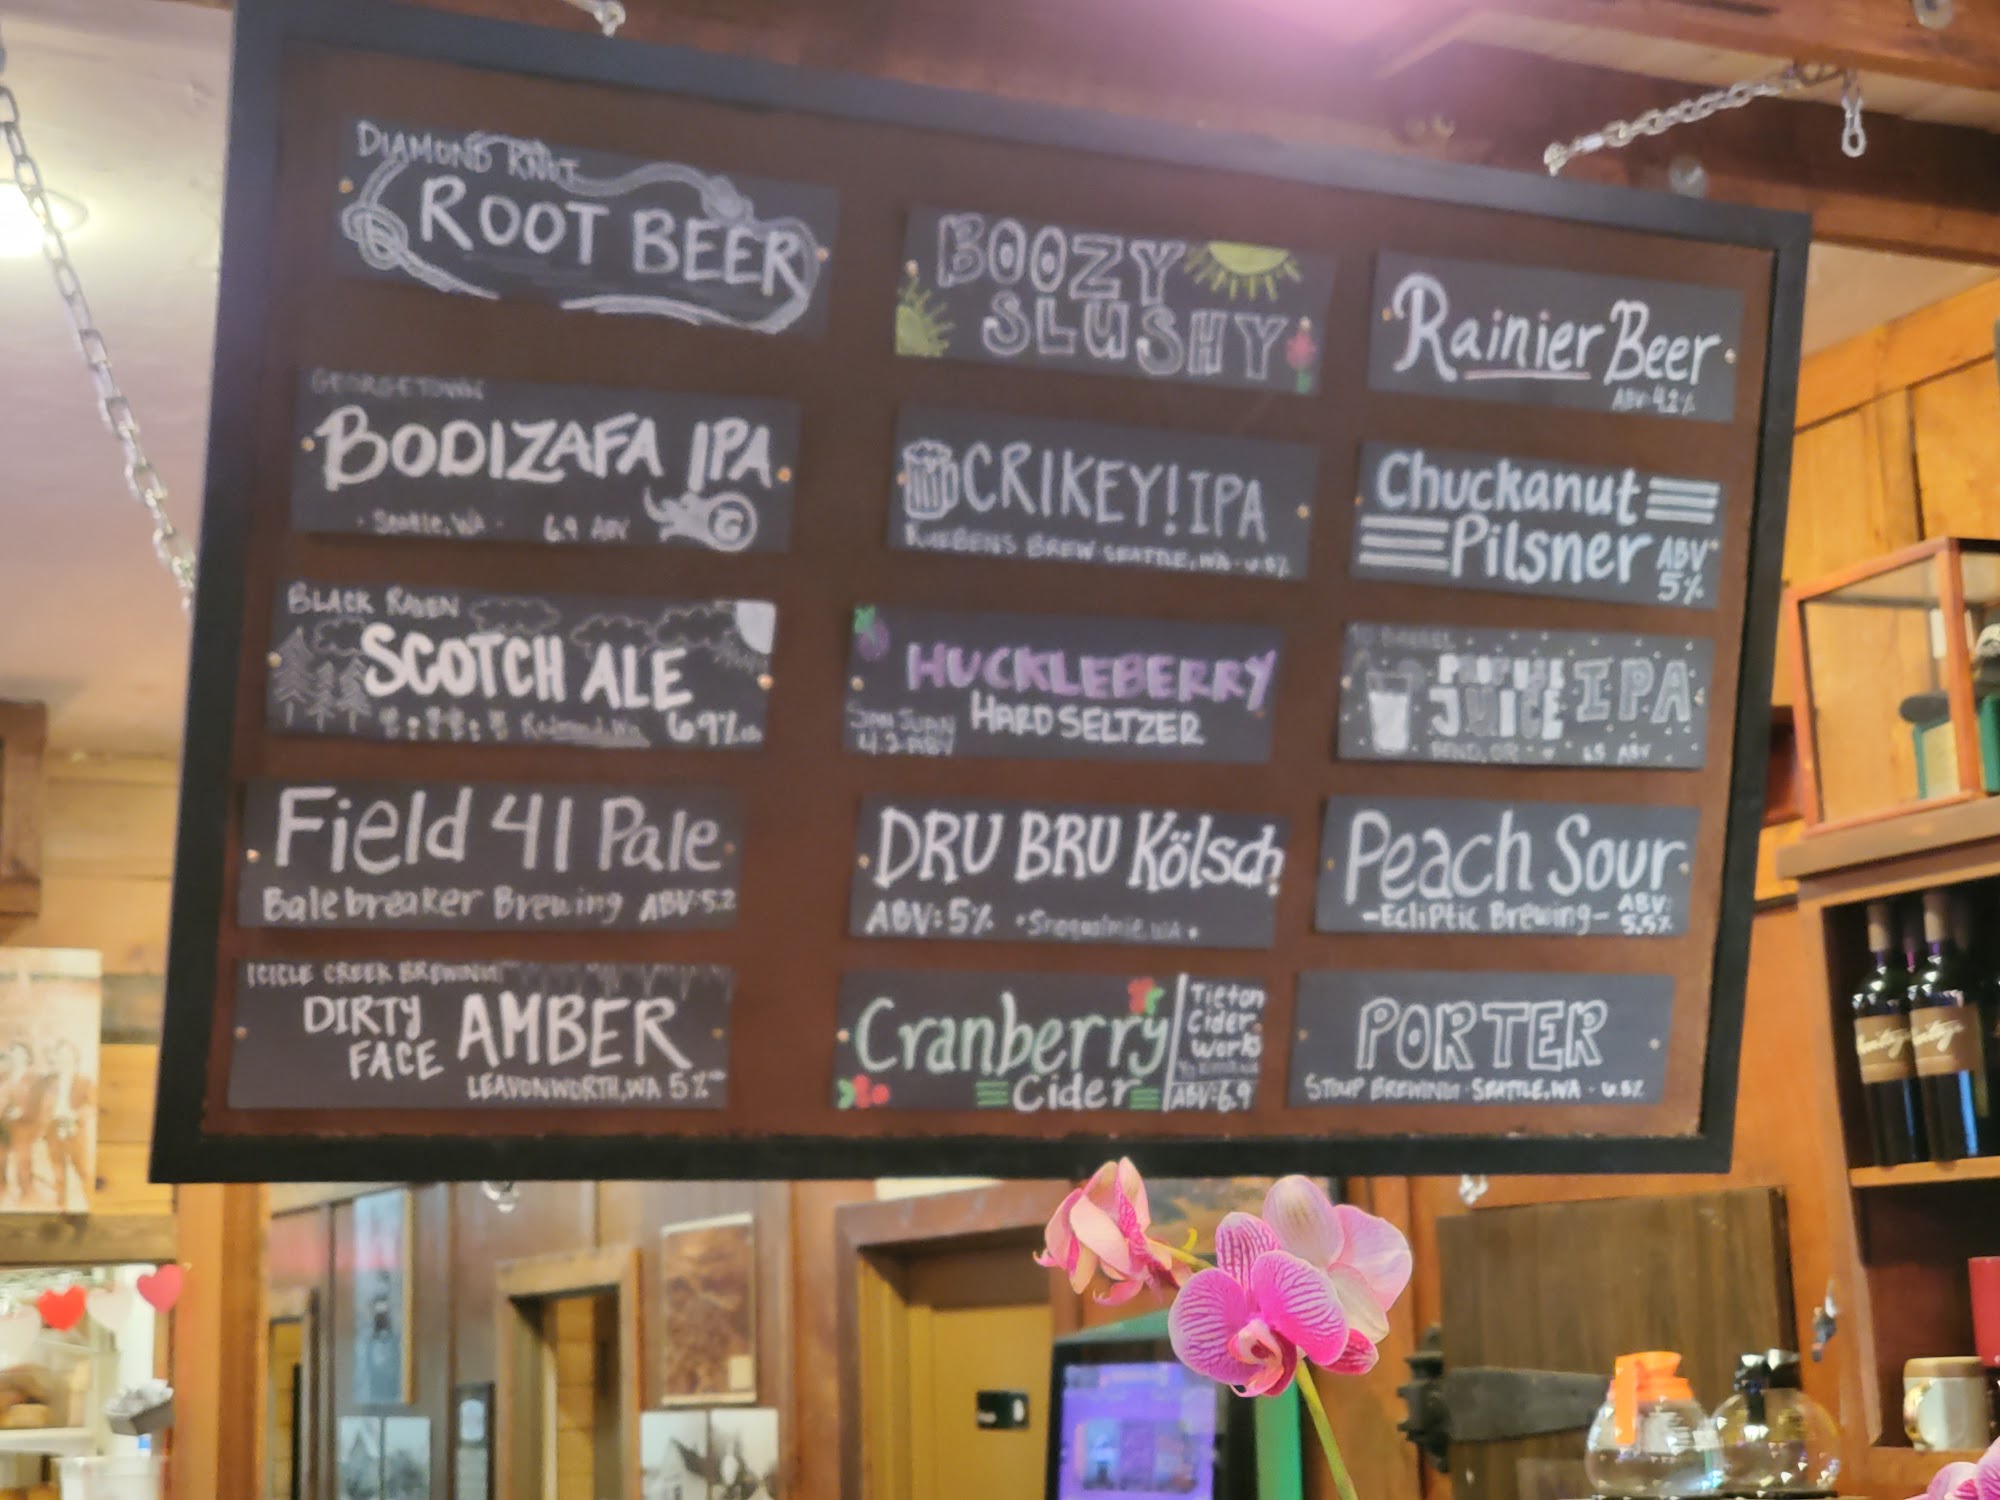 DIAMOND KNOT
ROOT BEER
GEORGETOWN
BODIZAFA IPA
· Seattle, WA · 6.9 ABV
G
BLACK RAVEN
SCOTCH ALE
Redmond, WA 6.9%
Field 41 Pale
Bale breaker Brewing ABV: 5.2
ICICLE CREEK BREWING
DIRTY FACE AMBER
LEAVONWORTH, WA 5%
BOOZY
SLUSHY
CRIKEY! IPA
BREW · SEATTLE, WA ·
HUCKLEBERRY
HARD SELTZER
SAN JUAN
4.2 ABV
DRU BRU Kölsch
ABV: 5% · Snoqualmie, WA ·
Cranberry
Cider
Tieton
Cider
Works
ABV: 6.9
Rainier Beer
ABV: 4.2%
Chuckanut
Pilsner ABV
5%
10 BARREL
JUICE IPA
BEND, OR 6.5 ABV
Peach Sour
-Ecliptic Brewing- ABV:
5.5%
PORTER
STOUP BREWING · SEATTLE, WA ·